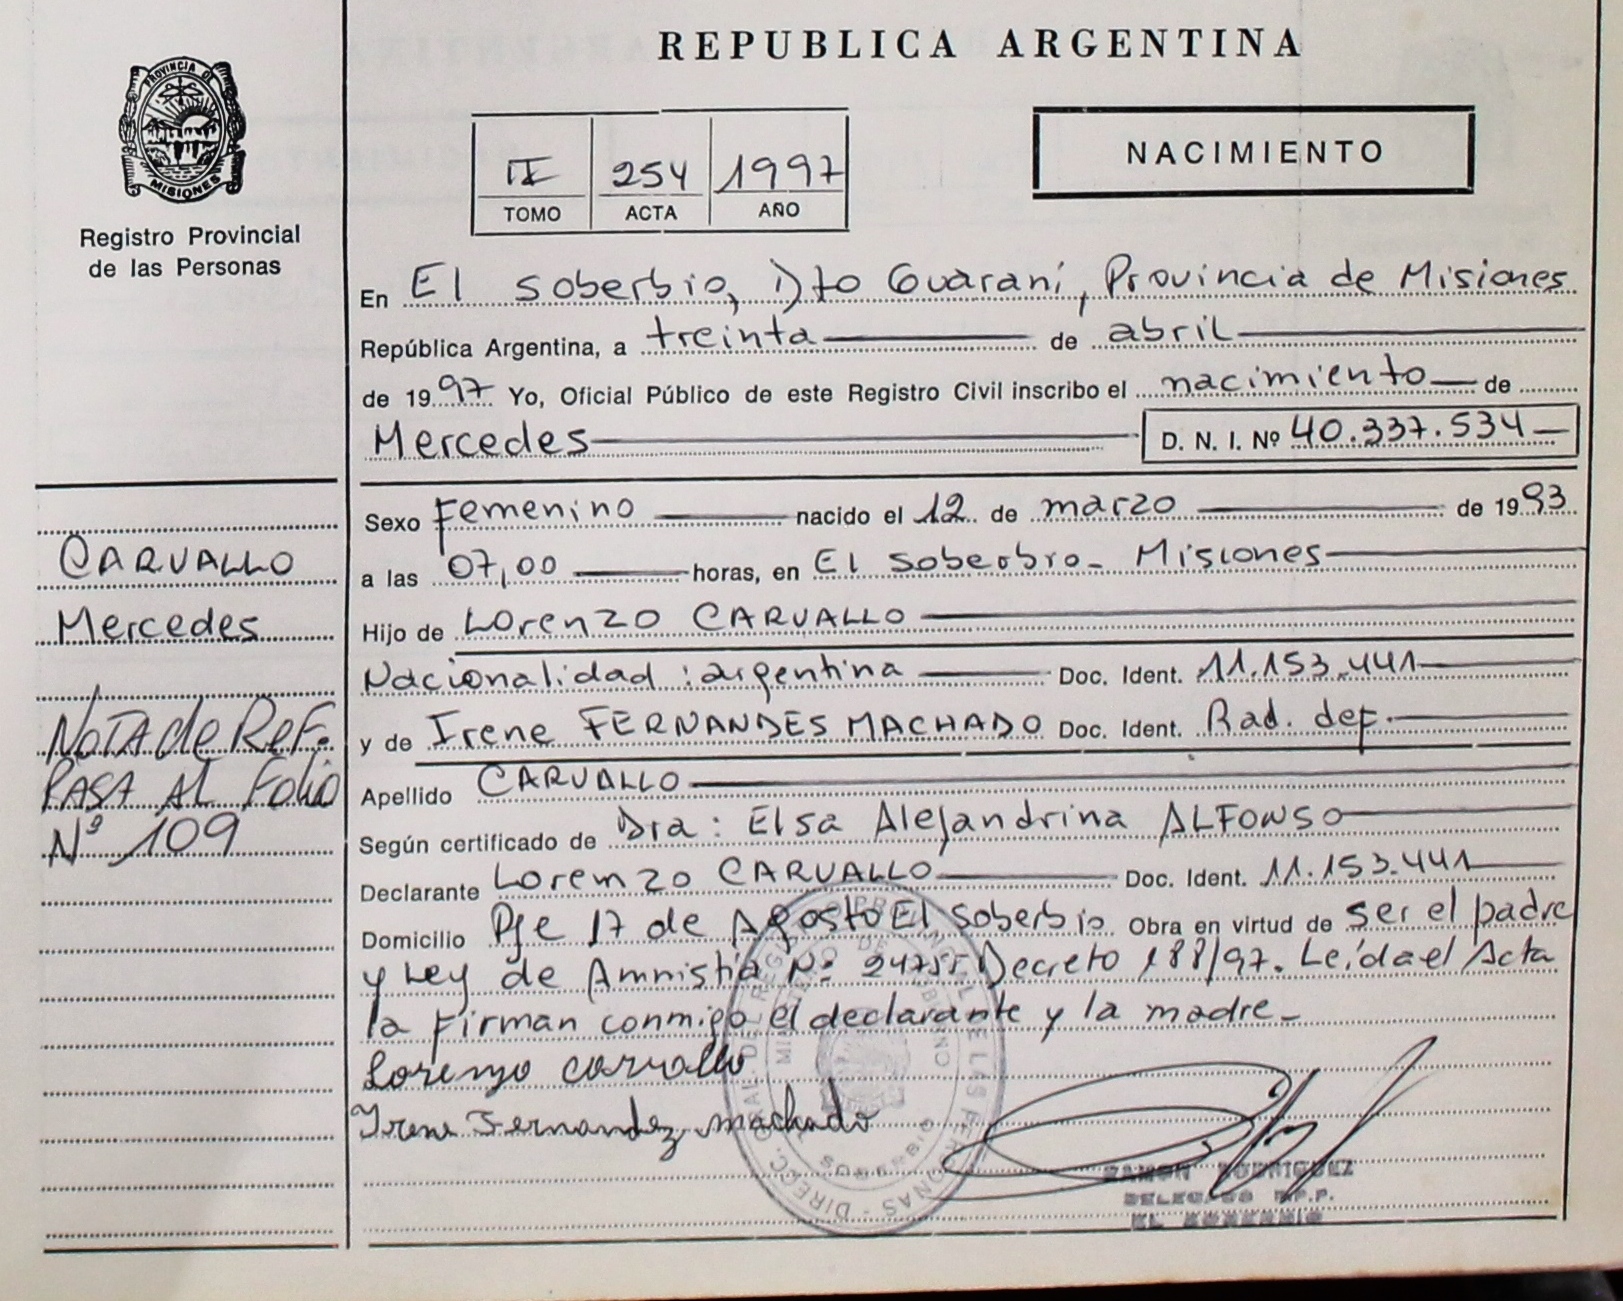 REPUBLICA ARGENTINA
PROVINCIA DE
MISIONES
Registro Provincial
de las Personas
II 254 1997
TOMO ACTA AÑO
NACIMIENTO
En El soberbio, Dto Guaraní, Provincia de Misiones
República Argentina, a treinta de abril
de 1997 Yo, Oficial Público de este Registro Civil inscribo el nacimiento de
Mercedes D. N. I. Nº 40.337.534
Sexo Femenino nacido el 12 de marzo de 1993
a las 07,00 horas, en El soberbio - Misiones
Hijo de Lorenzo CARVALLO
Nacionalidad : argentina Doc. Ident. 11.153.441
y de Irene FERNANDES MACHADO Doc. Ident. Rad. def.
Apellido CARVALLO
Según certificado de Dra : Elsa Alejandrina ALFONSO
Declarante Lorenzo CARVALLO Doc. Ident. 11.153.441
Domicilio Pje 17 de Agosto El soberbio Obra en virtud de ser el padre
y Ley de Amnistía Nº 24755 Decreto 188/97. Leída el Acta
la firman conmigo el declarante y la madre -
Lorenzo carvallo
Irene Fernandez machado
RAMON RODRIGUEZ
DELEGADO R.P.P.
EL SOBERBIO
CARVALLO
Mercedes
NOTA de REF.
PASA AL Folio
Nº 109